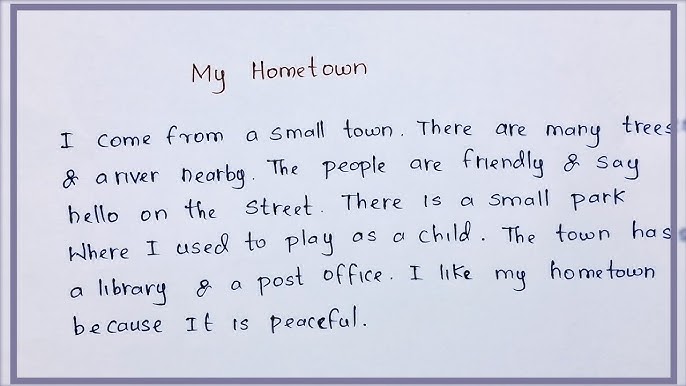 My Hometown
I come from a small town. There are many trees
& a river nearby. The people are friendly & say
hello on the street. There is a small park
Where I used to play as a child. The town has
a library & a post office. I like my hometown
because It is peaceful.